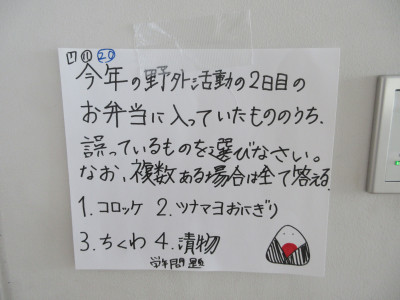 今年の野外活動の2日目の
お弁当に入っていたもののうち、
誤っているものを選びなさい。
なお、複数ある場合は全て答える。
1.コロッケ 2.ツナマヨおにぎり
3.ちくわ 4.漬物
学年問題